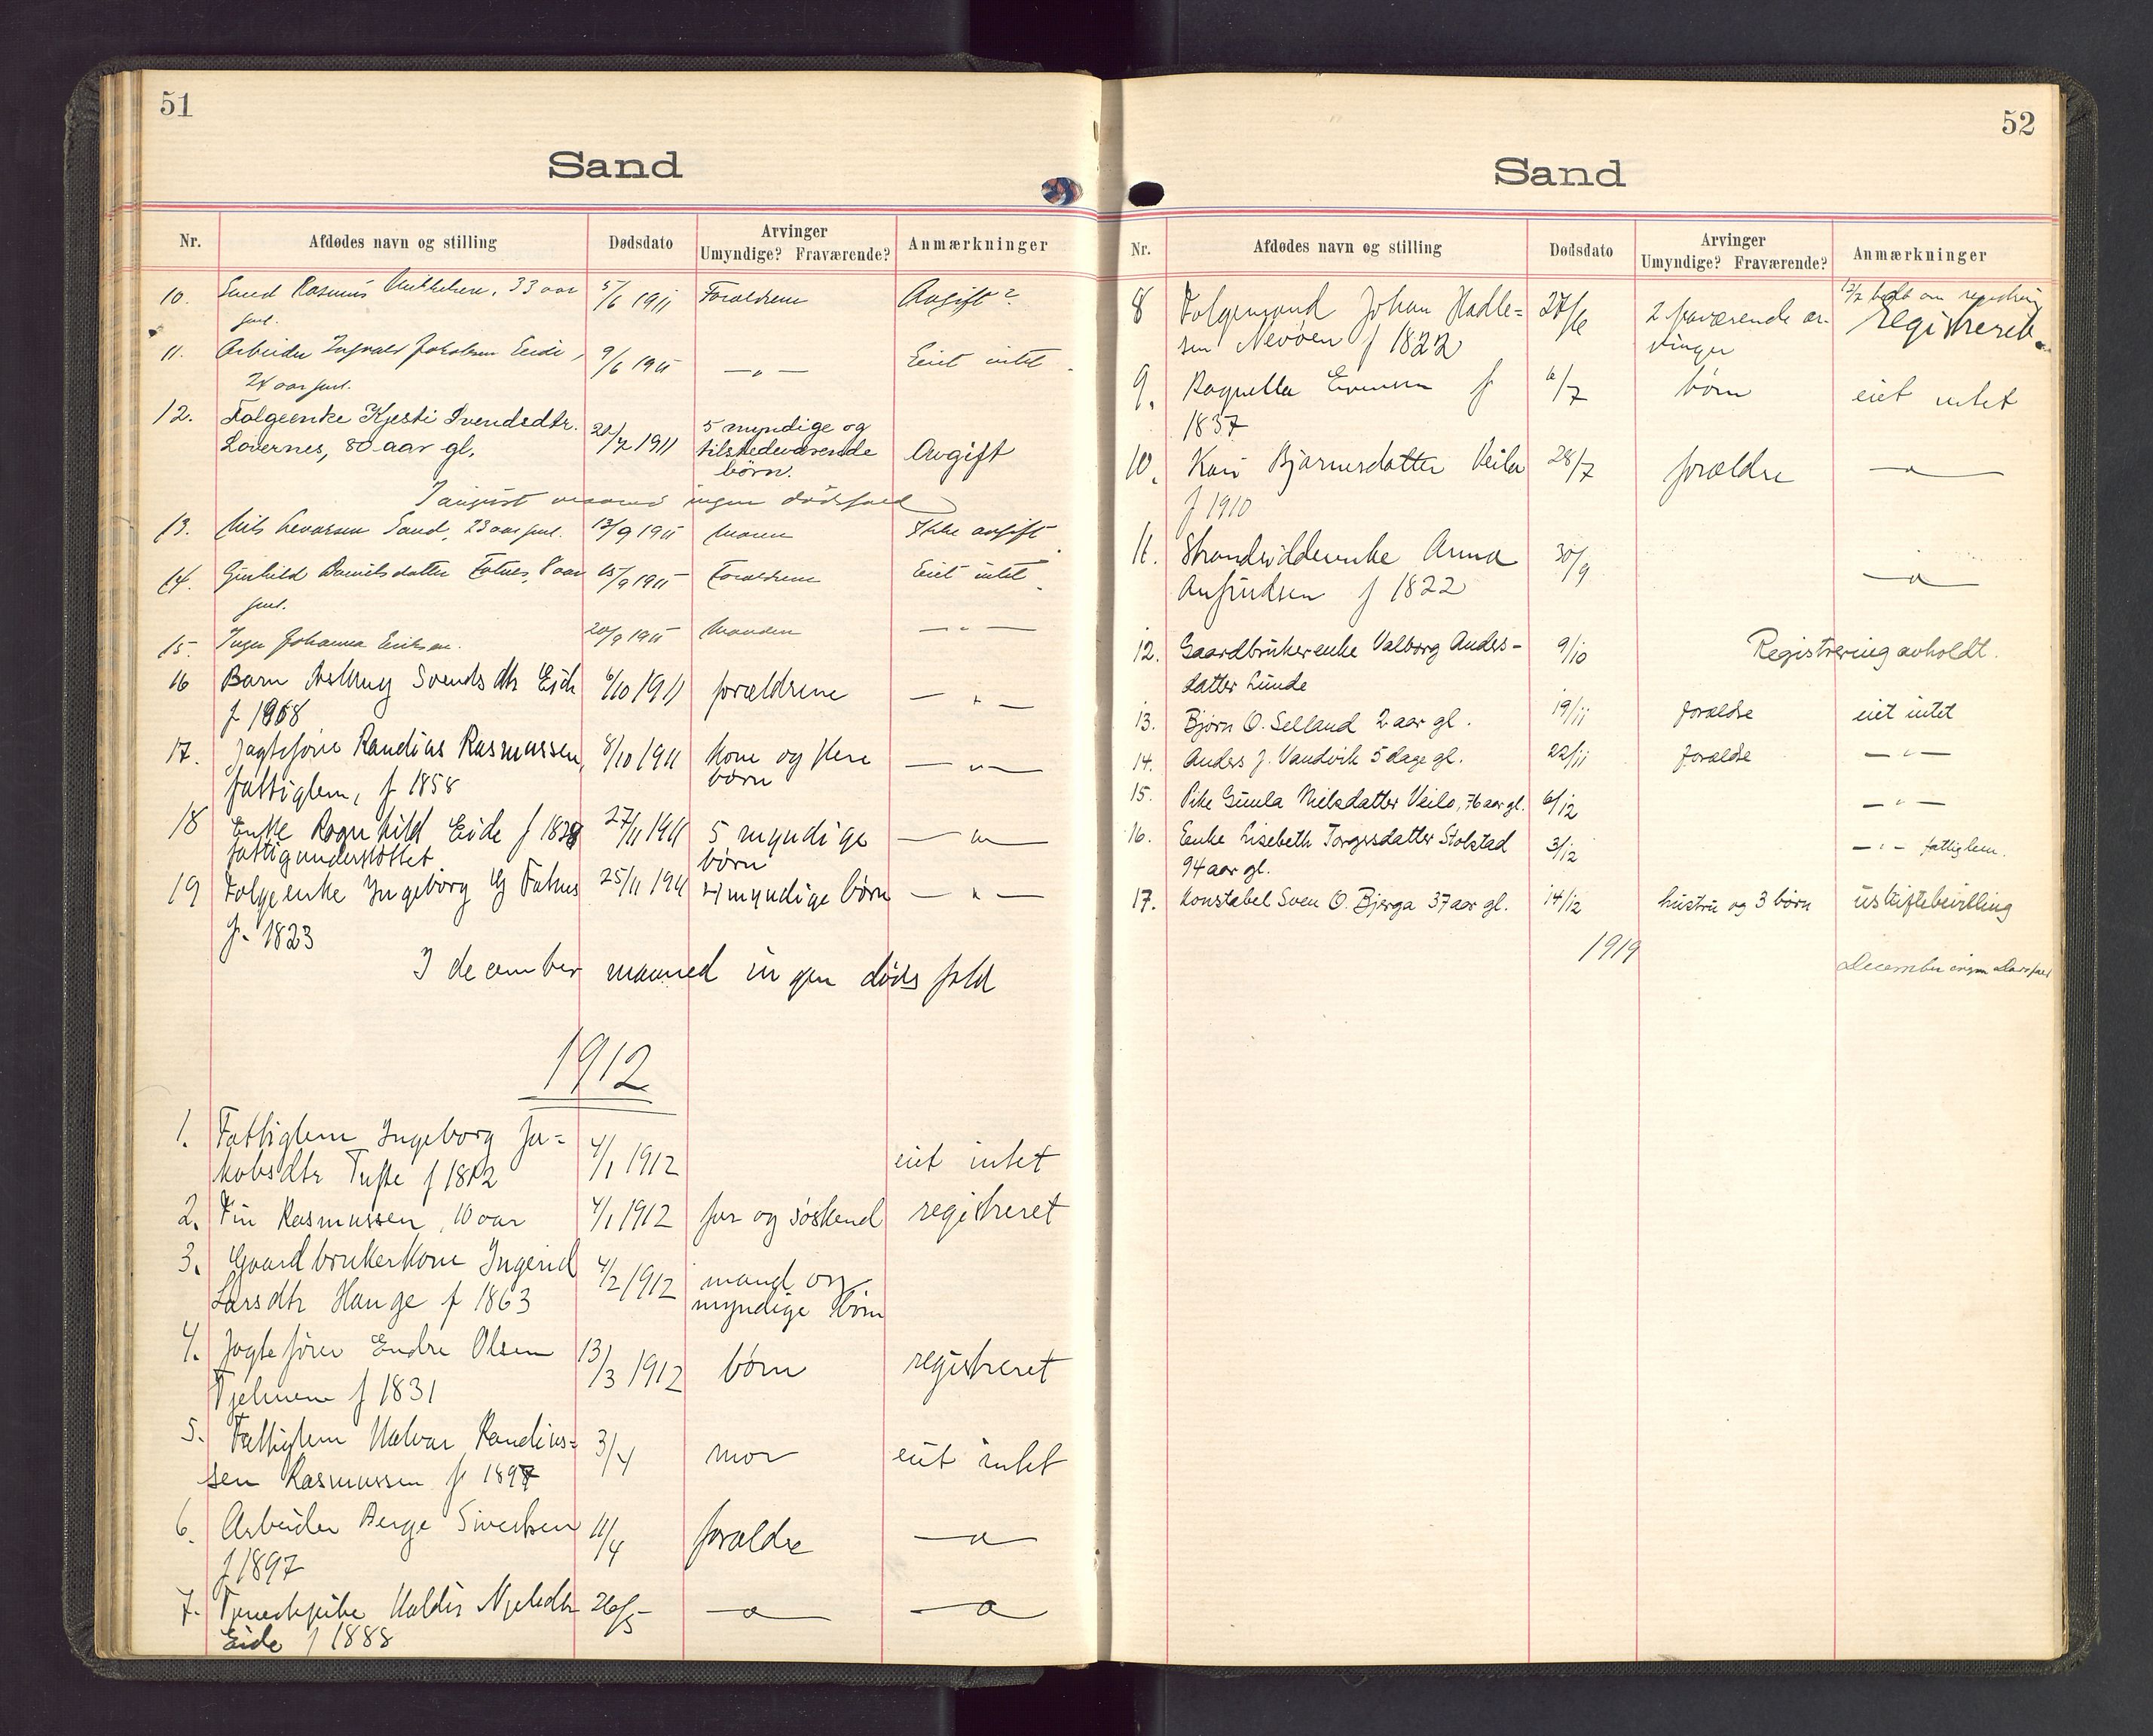 51
Sand
Nr. Afdødes navn og stilling Dødsdato Arvinger Umyndige? Fraværende? Anmærkninger
10. Sand Rasmus Mikkelsen, 33 aar 5/6 1911 Forældrene Avgift?
gml.
11. Arbeider Ingvald Jakobsen Eide, 9/6 1911 — " — Eiet intet.
24 aar gml.
12. Følgeenke Kjesti Svendsdtr. 20/7 1911 5 myndige og
Lovernes, 80 aar gl. tilstedeværende Avgift
børn.
I august maaned ingen dødsfald
13. Nils Sand, 23 aar gml. 13/9 1911 Ikke avgift.
14. Gunhild Danielsdatter Fatnes, 8 aar 15/9 1911 Forældrene Eiet intet.
gml.
15. Inger Johanna Eriksen. 20/9 1911 Manden — " —
16 Barn Svends dtr Eide 6/10 1911 forældrene — " —
f 1908
17. Jagtefører Randius Rasmussen, 8/10 1911 kone og flere — " —
fattiglem, f 1858 børn
18 Enke Ragnhild Eide f 1828 27/11 1911 5 myndige — " —
fattigunderstøttet børn
19 Følgeenke Ingeborg G Fatnes 25/11 1911 4 myndige børn — " —
f. 1823
I december maaned ingen dødsfald
1912
1. Fattiglem Ingeborg Ja=
kobsdtr Tufte f 1812 4/1 1912 eiet intet
2. Fin Rasmussen, 10 aar 4/1 1912 far og søskend registreret
3. Gaardbrukerkone Ingerid 4/2 1912 mand og
Larsdtr Hauge f 1863 myndige børn
4. Jagtefører Endre Olsen 13/3 1912 børn registreret
f 1831
5. Fattiglem Halvar Randius= 3/4 mor eiet intet
sen Rasmussen f 1897
6. Arbeider Berge Sivertsen 11/4 forældre — " —
f 1897
7. Tjenestepike Haldis Njelsdtr 26/5 — " — — " —
Eide f 1888
52
Sand
Nr. Afdødes navn og stilling Dødsdato Arvinger Umyndige? Fraværende? Anmærkninger
bedt om registrering
8 Følgemand Johan Hadle= 27/6 2 fraværende ar- registreret.
sen f 1822 vinger
9. Ragnilla Evensen f 6/7 børn eiet intet
1837
10. Kari Bjarnesdatter Veila 28/7 forældre — " —
f 1910
11. Strandsidderenke Anna 30/9 — " —
Anfindsen f 1822
12. Gaardbrukerenke Valborg Anders- 9/10 Registrering avholdt.
datter Lunde
13. Bjørn O. Selland 2 aar gl. 19/11 forældre eiet intet
14. Anders J. Vandvik 5 dage gl. 22/11 forældre — " —
15. Pike Gunla Nielsdatter Veila, 76 aar gl. 6/12 — " —
16. Enke Lisebeth Torgersdatter Stolstad 3/12 — " — fattiglem.
94 aar gl.
17. Konstabel Sven O. Bjerga 37 aar gl. 14/12 hustru og 3 børn uskiftebevilling
1919
December ingen dødsfald